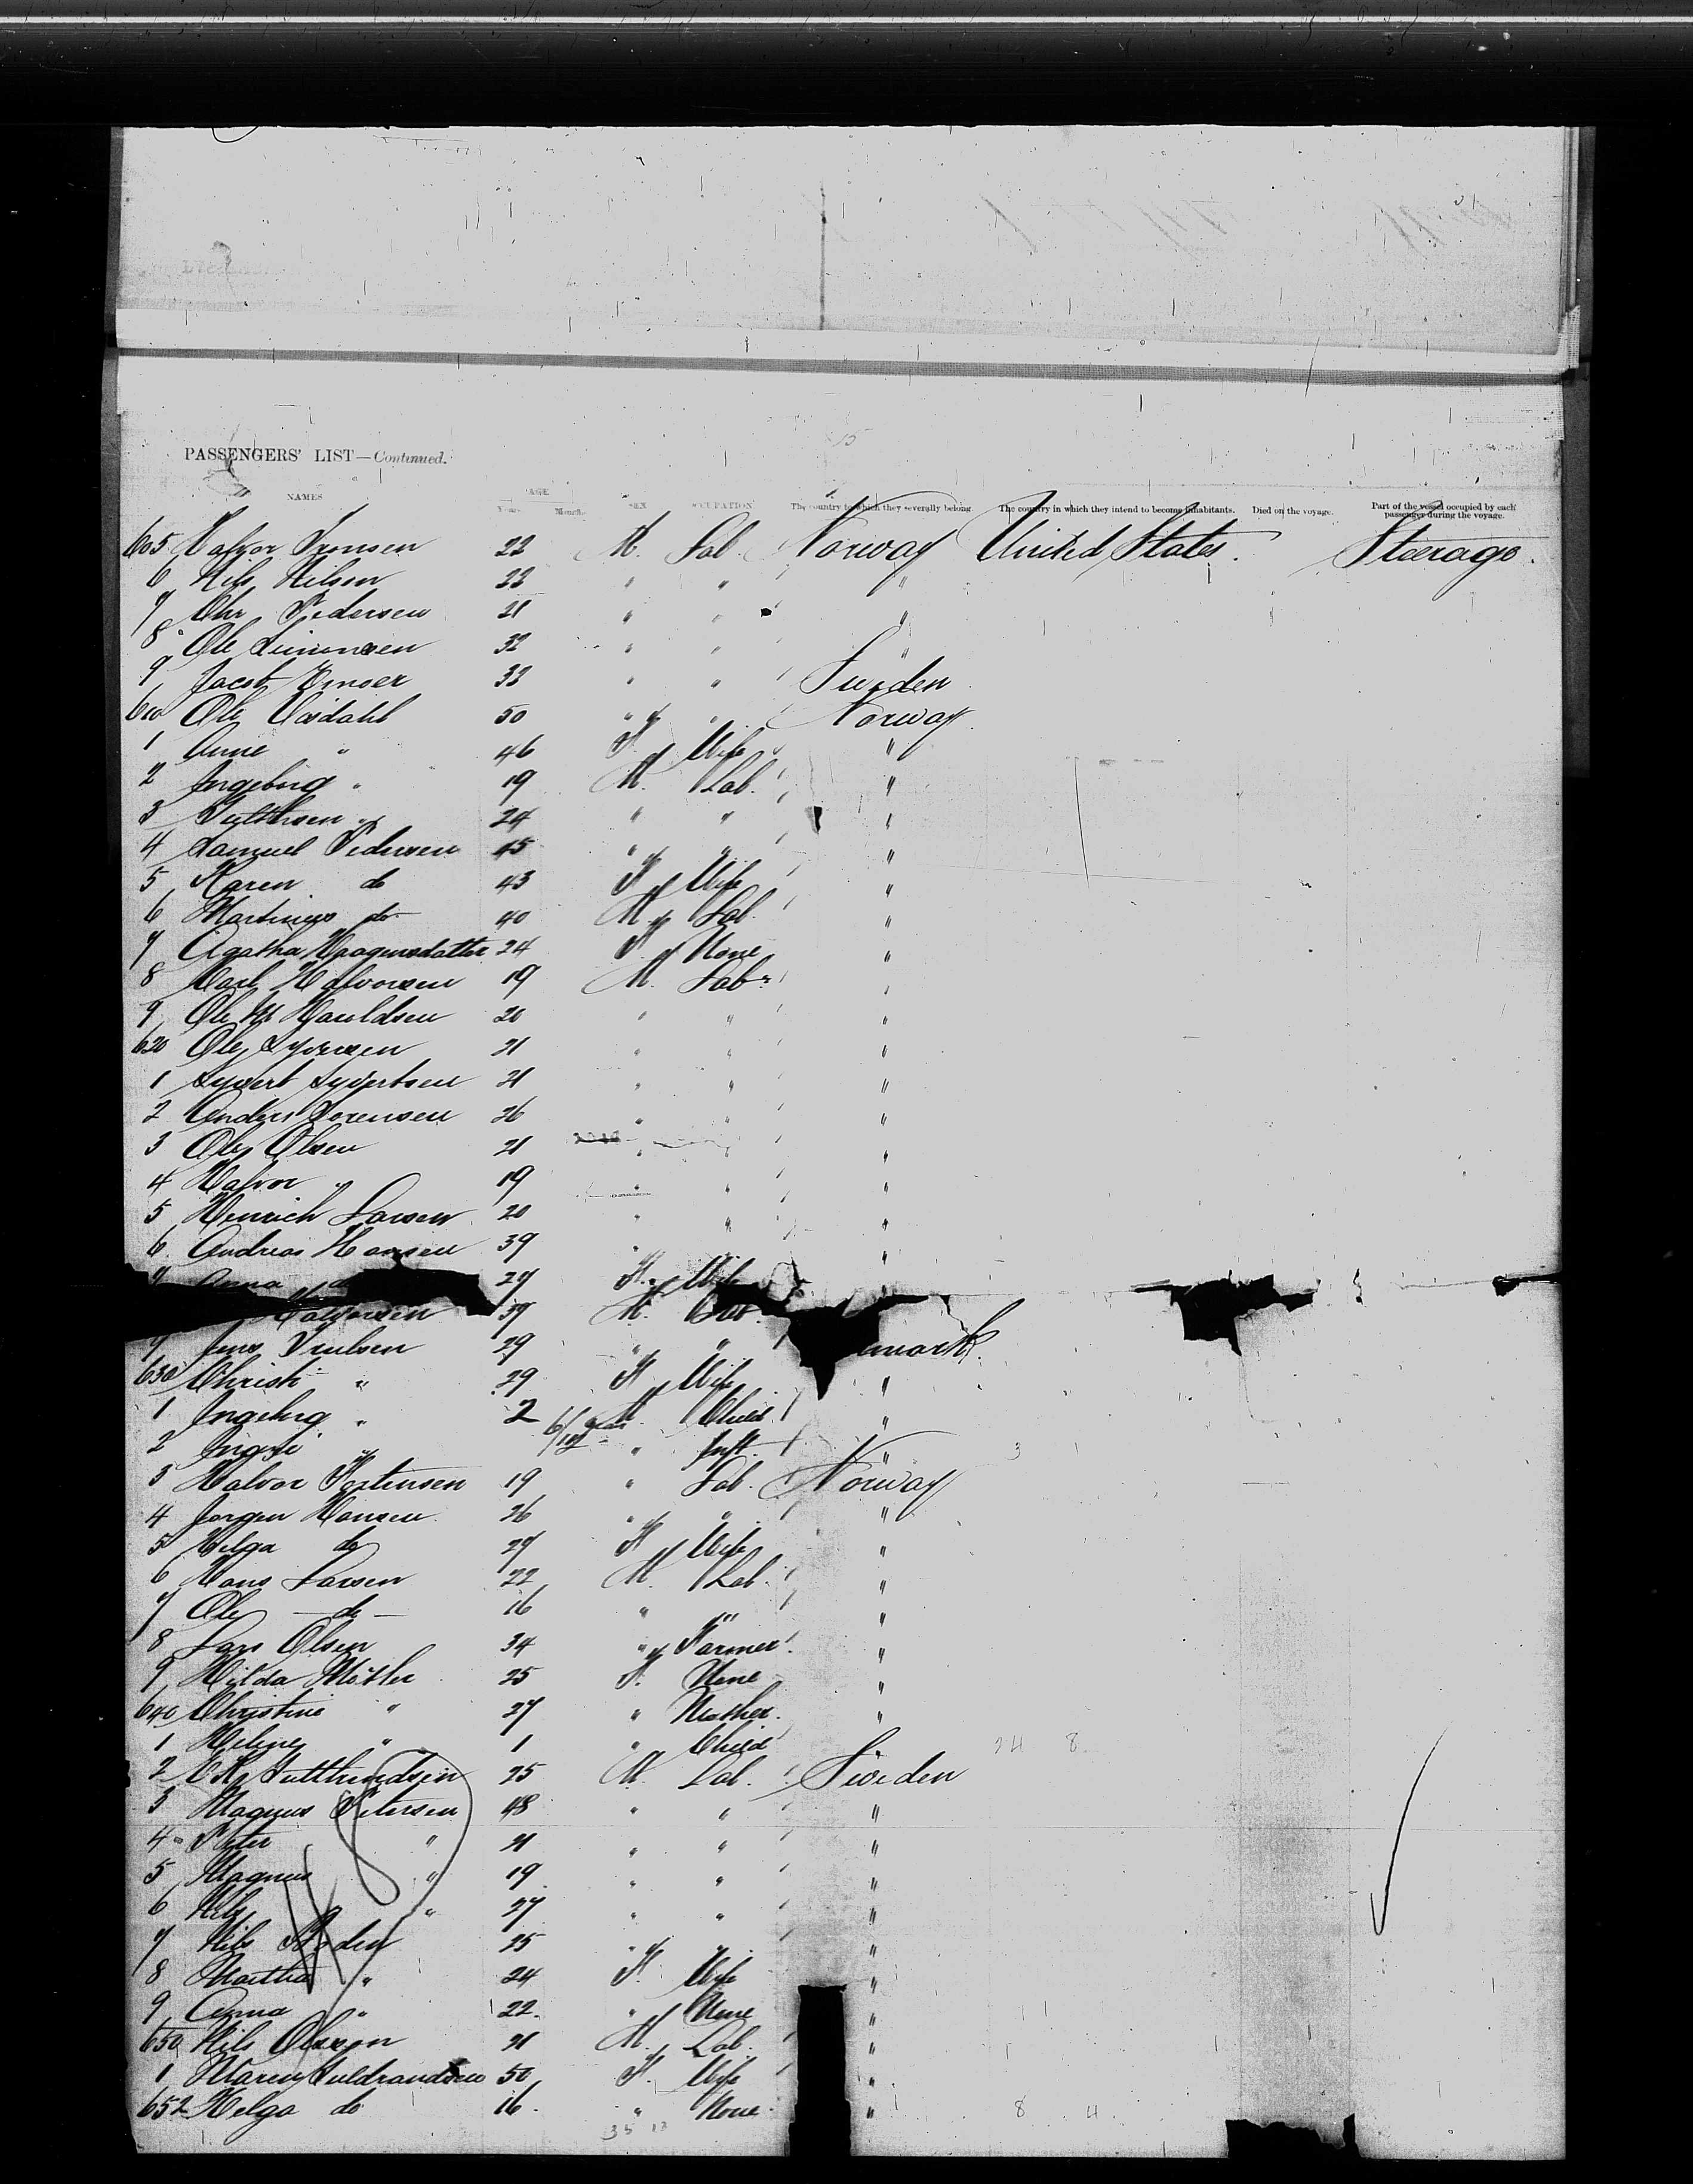 15
PASSENGERS' LIST—Continued.
NAMES AGE Years Months SEX OCCUPATION The country to which they severally belong. The country in which they intend to become inhabitants. Died on the voyage. Part of the vessel occupied by each passenger during the voyage.
605 Halvor Iversen 22 M. Lab. Norway United States. Steerage.
6 Nils Nilsen 22 " " "
7 Ohr Pedersen 21 " " "
8 Ole Simonsen 32 " " "
9 Jacob 33 " " Sweden
610 Ole 50 " " Norway
1 Anne " 46 F Wife "
2 Ingeborg " 19 M. Lab. "
3 " 24 " " "
4 Samuel Pedersen 45 " " "
5 Karen do 43 F Wife "
6 Martinus do 40 M Lab. "
7 Agatha Haagensdatter 24 F None "
8 Carl Halvorsen 19 M. Lab. "
9 Ole M Hauldsen 20 " " "
620 Ole Syversen 21 " " "
1 Syvert Syvertsen 21 " " "
2 Anders Sorensen 26 " " "
3 Ole Olsen 21 " " "
4 Halvor " 19 " " "
5 Henrich Larsen 20 " " "
6 Andreas Hansen 39 " " "
7 Anna do 27 F. Wife
Halvorsen 39 M. Lab.
9 Jens 29 " " mark.
630 Christi " 29 F Wife "
1 Ingeborg " 2 M. Child "
2 " 6/12 " Inft. "
3 Halvor 19 " Lab. Norway
4 Jorgen Hansen 26 " " "
5 Helga do 27 F Wife "
6 Hans Larsen 22 M. Lab. "
7 Ole — do — 16 " " "
8 Lars Olsen 34 " Farmer "
9 Hilda 25 F. None "
640 Christine " 27 " Mother. "
1 Helene " 1 " Child " 24 8
2 25 M. Lab. Sweden
3 Magnus Petersen 48 " " "
4 Peter " 21 " " "
5 Magnus " 19 " " "
6 Nils " 27 " " "
7 Nils 25 " " "
8 Martha " 24 F. Wife "
9 Anna " 22. " None "
650 Nils Olsson 21 M. Lab. "
1 Maren Guldrandsen 50 F. Wife "
652 Helga do 16. " None " 8 4
35 13